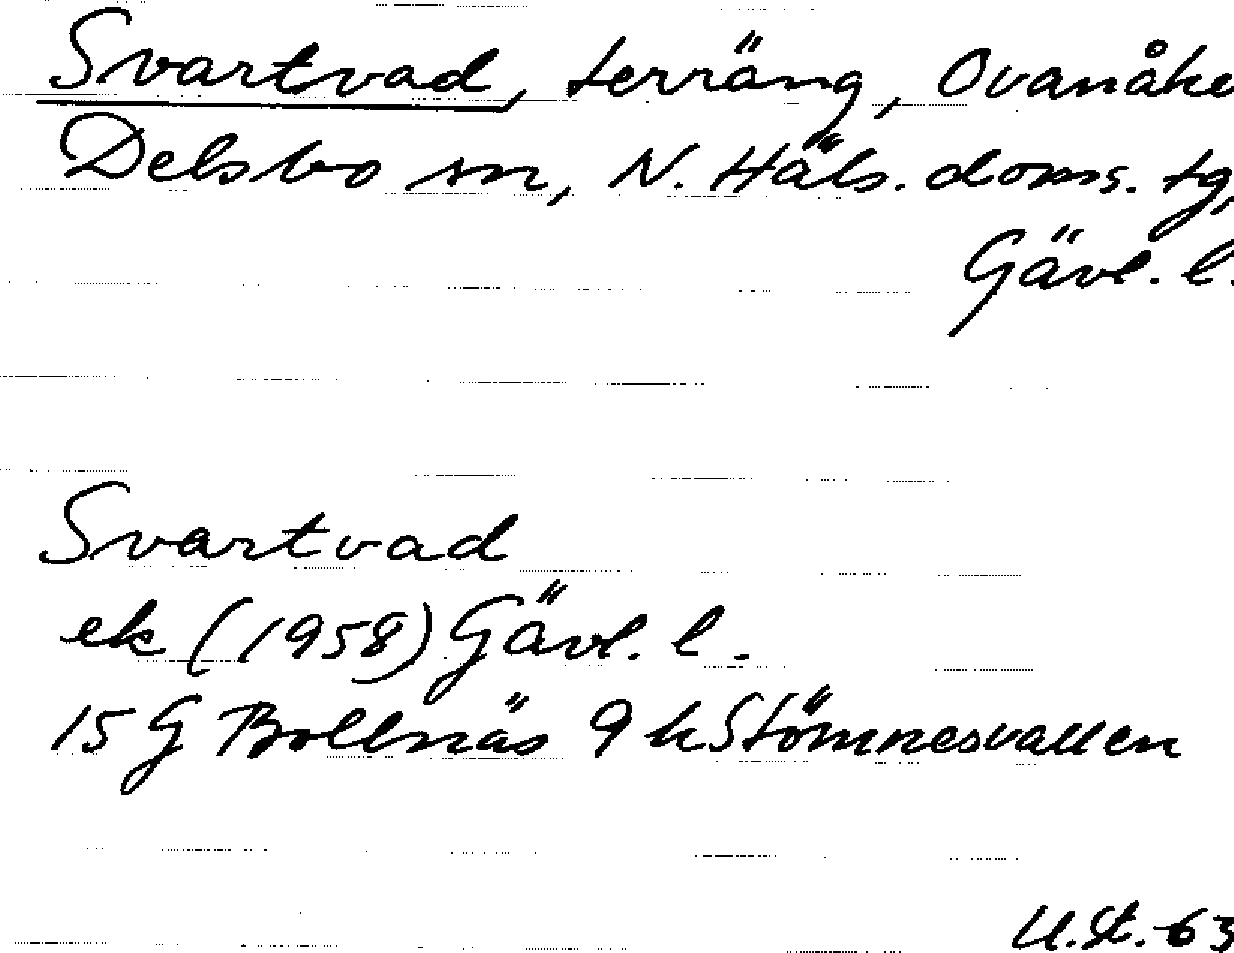 Svartvad, terräng, Ovanåke
Delsbo sn, N. Häls. doms. tg,
Gävl. l.
Svartvad
ek (1958) Gävl. l.
15 G Bollnäs 9 h Stömnesvallen
U.St.-63